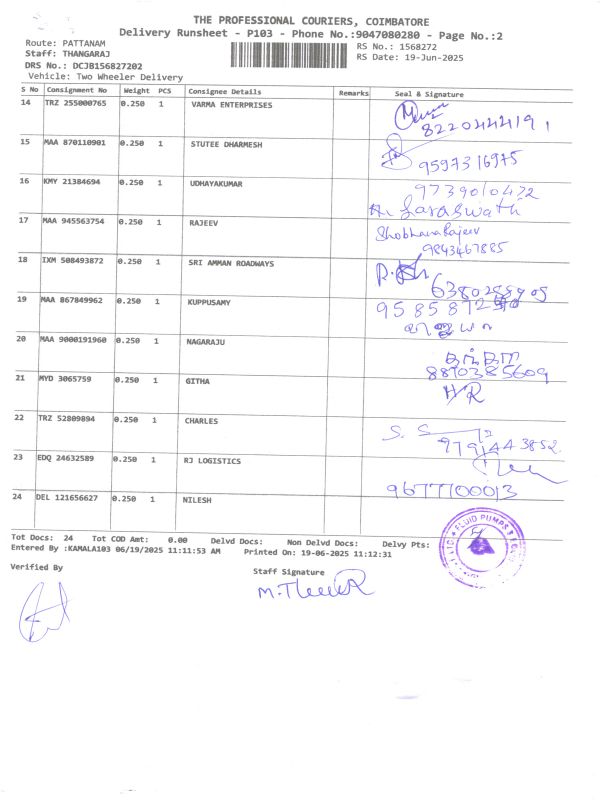 THE PROFESSIONAL COURIERS, COIMBATORE
Delivery Runsheet - P103 - Phone No.:9047080280 - Page No.:2
Route: PATTANAM
RS No.: 1568272
Staff: THANGARAJ
RS Date: 19-Jun-2025
DRS No.: DCJB156827202
Vehicle: Two Wheeler Delivery
S No Consignment No Weight PCS Consignee Details Remarks Seal & Signature
14 TRZ 255000765 0.250 1 VARMA ENTERPRISES
8220444191
15 MAA 870110901 0.250 1 STUTEE DHARMESH
9597316975
16 KMY 21384694 0.250 1 UDHAYAKUMAR
9739010472
Saraswathi
17 MAA 945563754 0.250 1 RAJEEV
Shobhana Rajeev
9843467885
18 IXM 508493872 0.250 1 SRI AMMAN ROADWAYS
19 MAA 867849962 0.250 1 KUPPUSAMY
20 MAA 9000191960 0.250 1 NAGARAJU
8870385609
21 MYD 3065759 0.250 1 GITHA
22 TRZ 52809894 0.250 1 CHARLES
9791443852.
23 EDQ 24632589 0.250 1 RJ LOGISTICS
9677100013
24 DEL 121656627 0.250 1 NILESH
Tot Docs: 24 Tot COD Amt: 0.00 Delvd Docs: Non Delvd Docs: Delvy Pts:
Entered By :KAMALA103 06/19/2025 11:11:53 AM Printed On: 19-06-2025 11:12:31
FLUID PUMPS
Verified By
Staff Signature